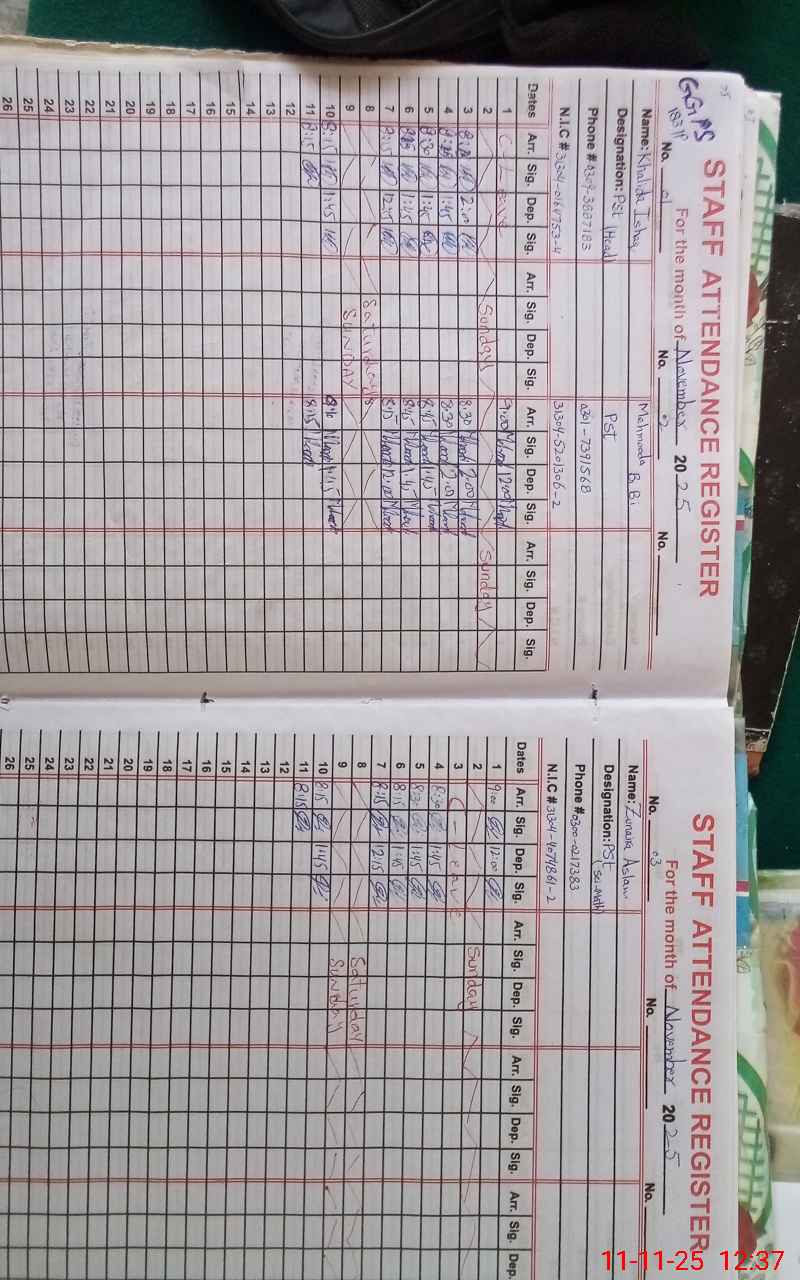 GGPS
183/P
STAFF ATTENDANCE REGISTER
For the month of November 2025
No. 01 No. 02 No.
Name: Khalida Ishaq Mehmooda Bibi
Designation: Pst (Head) Pst
Phone # 0309-3887183 0301-7391568
N.I.C # 31304-5201306-2
Dates Arr. Sig. Dep. Sig. Arr. Sig. Dep. Sig. Arr. Sig. Dep. Sig. Arr. Sig. Dep. Sig.
1 C-Leave 9:00 12:00
2 Sunday Sunday
3 2:00 8:30 2:00
4 1:45 8:30 2:00
5 8:30 1:45 8:45 1:45
6 1:45 8:45 1:45
7 8:15 12:15 8:15 12:00
8 Saturday
9 SUNDAY
10 8:15 1:45
11 8:15 8:15
12
13
14
15
16
17
18
19
20
21
22
23
24
25
26
STAFF ATTENDANCE REGISTER
For the month of November 2025
No. 03 No. No.
Name: Zunaira Aslam
Designation: Pst (Sci-Math)
Phone # 0300-0217383
N.I.C # 31304-4074861-2
Dates Arr. Sig. Dep. Sig. Arr. Sig. Dep. Sig. Arr. Sig. Dep. Sig. Arr. Sig. Dep.
1 9:00 12:00
2 Sunday
3 C-Leave
4 8:30 1:45
5 8:30 1:45
6 8:15 1:45
7 8:15 12:15
8 Saturday
9 SUNDAY
10 8:15 1:45
11 8:15
12
13
14
15
16
17
18
19
20
21
22
23
24
25
26
11-11-25 12:37